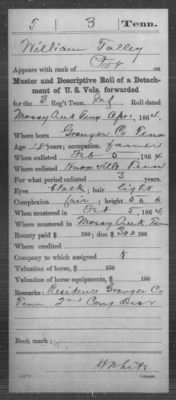 T 3 Tenn.
William Talley
Appears with rank of Pvt
Muster and Descriptive Roll of a Detach-
ment of U. S. Vols. forwarded
for the 3 Reg't Tenn. Inf Roll dated
Mossy Creek Tenn Apr, 1864.
Where born Granger Co Tenn
Age 18 years; occupation farmer
When enlisted Feb 5, 1864
Where enlisted Knoxville Tenn
For what period enlisted 3 years.
Eyes black; hair light
Complexion fair; height 5 ft. 6 in.
When mustered in Oct 5, 1864
Where mustered in Mossy Creek Tn
Bounty paid $ 100; due $ 300 100
Where credited
Company to which assigned K
Valuation of horse, $ 100
Valuation of horse equipments, $ 100
Remarks: Residence Granger Co
Tenn 2nd Cong Dist
Book mark:
White